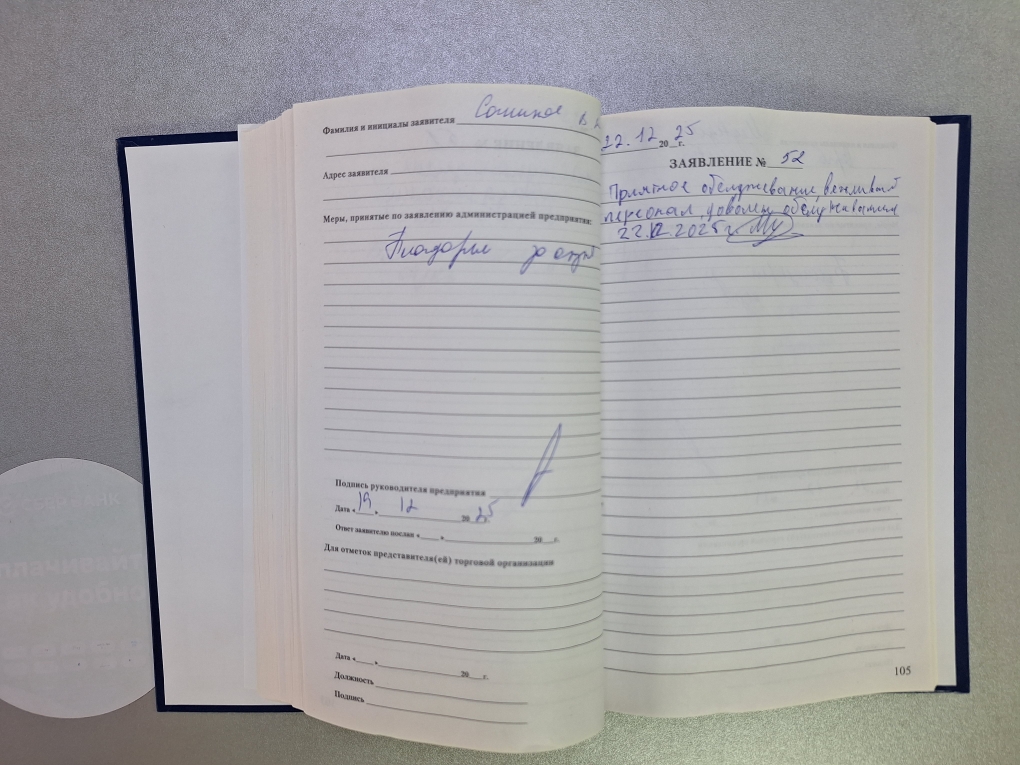 Фамилия и инициалы заявителя
Адрес заявителя
Меры, принятые по заявлению администрацией предприятия:
за отзыв
Подпись руководителя предприятия
Дата « 19 » 12 20 25 г.
Ответ заявителю послан « » 20 г.
Для отметок представителя(ей) торговой организации
Дата « » 20 г.
Должность
Подпись
22.12 20 25 г.
ЗАЯВЛЕНИЕ № 52
Приятное обслуживание, вежливый
персонал, довольны обслуживанием
22.12.2025 г
105